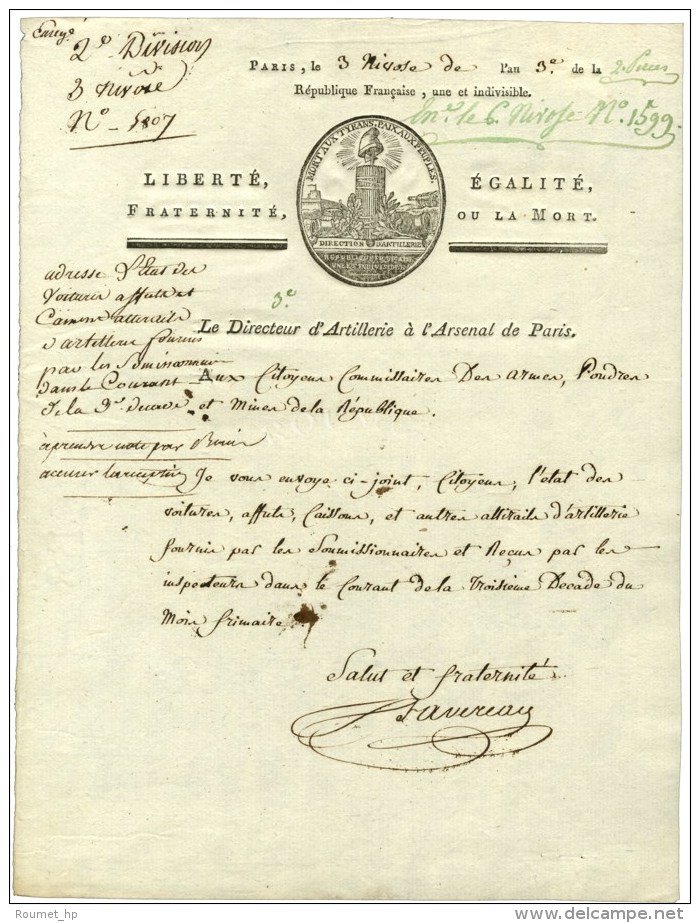 Enregé
2e Division
3 nivose
No 5807
PARIS, le 3 Nivose de l'an 3e. de la
2 Pieces
République Française, une et indivisible.
Enr. le 6. Nivose No. 1599
MORT AUX TYRANS, PAIX AUX PEUPLES.
LIBERTÉ, ÉGALITÉ,
FRATERNITÉ, OU LA MORT.
DIRECTION D'ARTILLERIE
REPUBLIQUE FRANCAISE
UNE ET INDIVISIBLE
adresse l'Etat des
voitures affuts et
3e
Le Directeur d'Artillerie à l'Arsenal de Paris.
attirails
d'artillerie fournis
par les Soumissionnaires
dans le Courant
de la 3e. decade
Aux Citoyens Commissaires Des armes, Poudres
et Mines de la République.
à prendre note par
accuser la reception
Je vous envoye ci-joint, Citoyens, l'état des
voitures, affuts, Caissons, et autres attirails d'artillerie
fournis par les Soumissionnaires et Reçus par les
inspecteurs dans le Courant de la Troisième Decade du
Mois frimaire.
Salut et fraternité
Roumet_hp
www.delcampe.net